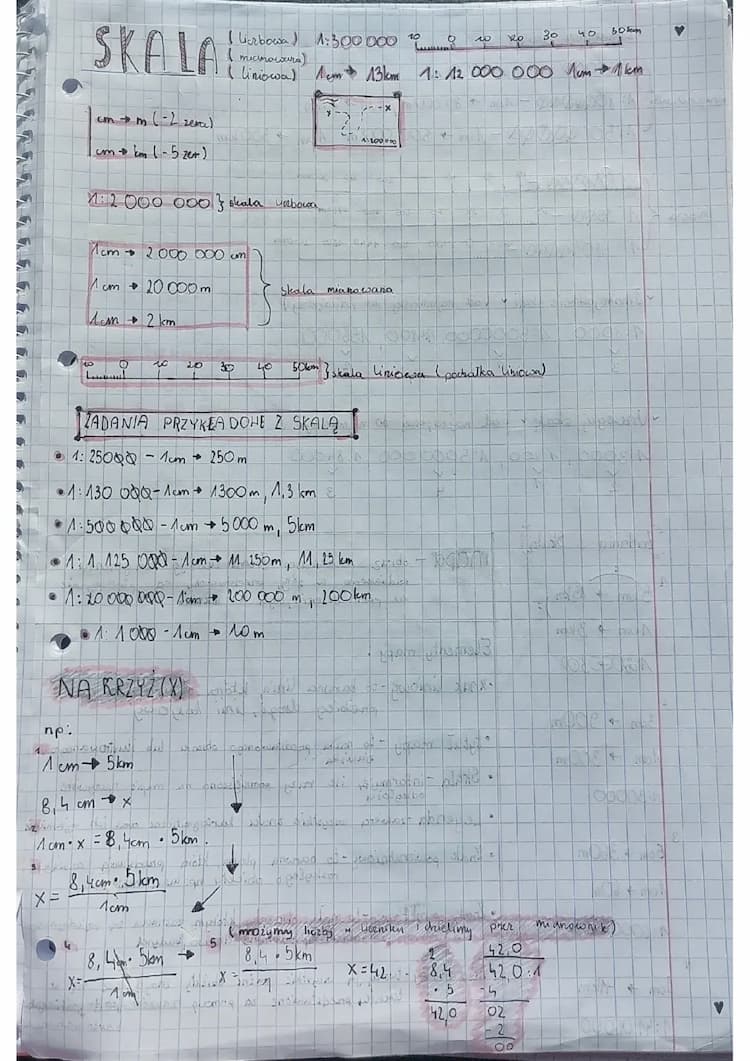 SKALA
(liczbowa) 1:300 000 10 0 10 20 30 40 50km
(mianowana)
(liniowa) 1cm → 13km 1:12 000 000 1cm → 1km
x x
1:200 000
cm → m (-2 zera)
cm → km (-5 zer)
1:2 000 000 } skala liczbowa
1cm → 2 000 000 cm
1cm → 20 000 m
1cm → 2 km
skala mianowana
10 0 10 20 30 40 50km } skala liniowa (podziałka liniowa)
ZADANIA PRZYKŁADOWE Z SKALĄ
• 1:25000 - 1cm → 250m
• 1:130 000 - 1cm → 1300m, 1,3 km
• 1:500 000 - 1cm → 5 000 m, 5km
• 1:1 125 000 - 1cm → 11 250m, 11,25 km
• 1:20 000 000 - 1cm → 200 000 m, 200km
• 1:1 000 - 1cm → 10m
NA KRZYŻ(X)
np:
1.
1cm → 5km
8,4cm → x
2.
1cm · x = 8,4cm · 5km.
3.
x = 8,4cm · 5km
1cm
4.
x = 8,4cm · 5km
1cm
→
5 (mnożymy liczby w liczniku i dzielimy przez mianownik)
x = 8,4 · 5km
x = 42
2
8,4
· 5
42,0
42,0
42,0:1
-4
02
-2
00